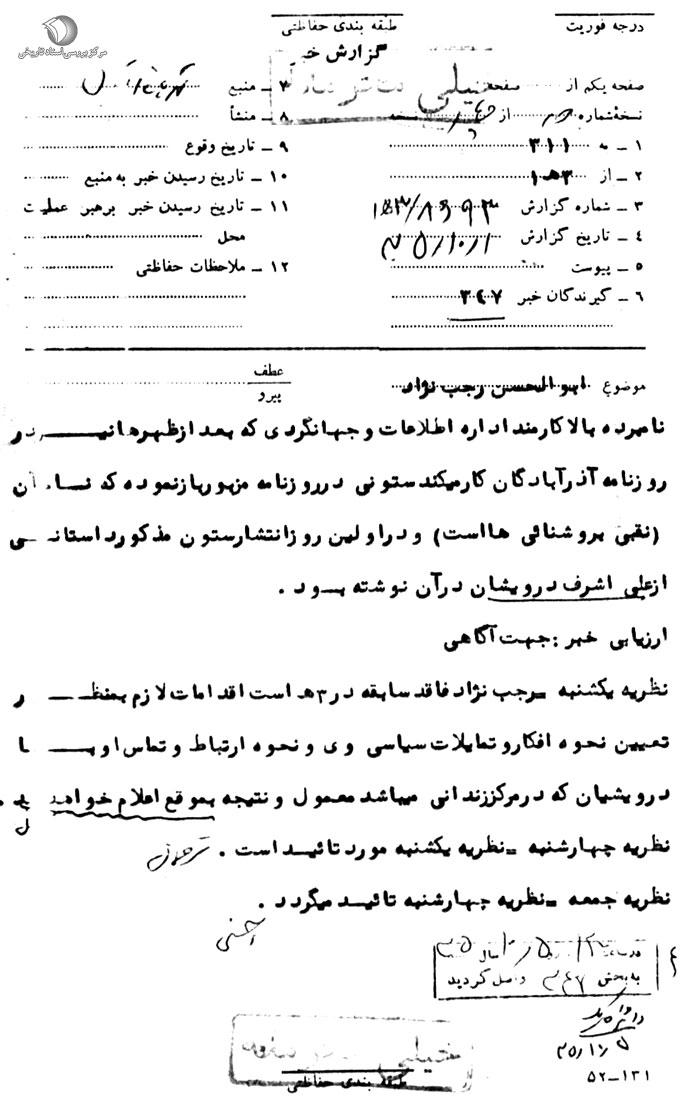 مرکز بررسی اسناد تاریخی
درجه فوریت
طبقه بندی حفاظتی
گزارش خبر
خیلی محرمانه
صفحه یکم از صفحه
نسخهٔ شماره از نسخه
۱ ـ به ۳۱۱
۲ ـ از ۳ هـ ۱
۳ ـ شماره گزارش
۴ ـ تاریخ گزارش
۵ ـ پیوست
۶ ـ گیرندگان خبر ۳۴۷
۷ ـ منبع
۸ ـ منشأ
۹ ـ تاریخ وقوع
۱۰ ـ تاریخ رسیدن خبر به منبع
۱۱ ـ تاریخ رسیدن خبر برهبر عملیات
محل
۱۲ ـ ملاحظات حفاظتی
موضوع ابوالحسن رجب نژاد
عطف
پیرو
نامبرده بالا کارمند اداره اطلاعات و جهانگردی که بعد از ظهرها نیز در
روزنامه آذرآبادگان کار میکند ستونی در روزنامه مزبور باز نموده که نام آن
(نقبی بروشنائی ها است) و در اولین روز انتشار ستون مذکور داستانی
از علی اشرف درویشان در آن نوشته بود .
ارزیابی خبر : جهت آگاهی
نظریه یکشنبه ـ رجب نژاد فاقد سابقه در ۳ هـ است اقدامات لازم بمنظور
تعیین نحوه افکار و تمایلات سیاسی وی و نحوه ارتباط و تماس او با
درویشیان که در مرکز زندانی میباشد معمول و نتیجه بموقع اعلام خواهد
نظریه چهارشنبه ـ نظریه یکشنبه مورد تائید است .
نظریه جمعه ـ نظریه چهارشنبه تائید میگردد .
به بخش ۳۴۷ واصل گردید
خیلی محرمانه
طبقه بندی حفاظتی
۵۲-۱۳۱